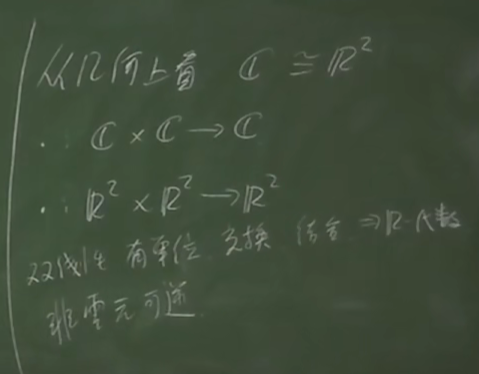 从几何上看 ℂ ≅ ℝ²
· : ℂ × ℂ → ℂ
· : ℝ² × ℝ² → ℝ²
双线性 有单位 交换 结合 ⇒ ℝ-代数
非零元可逆